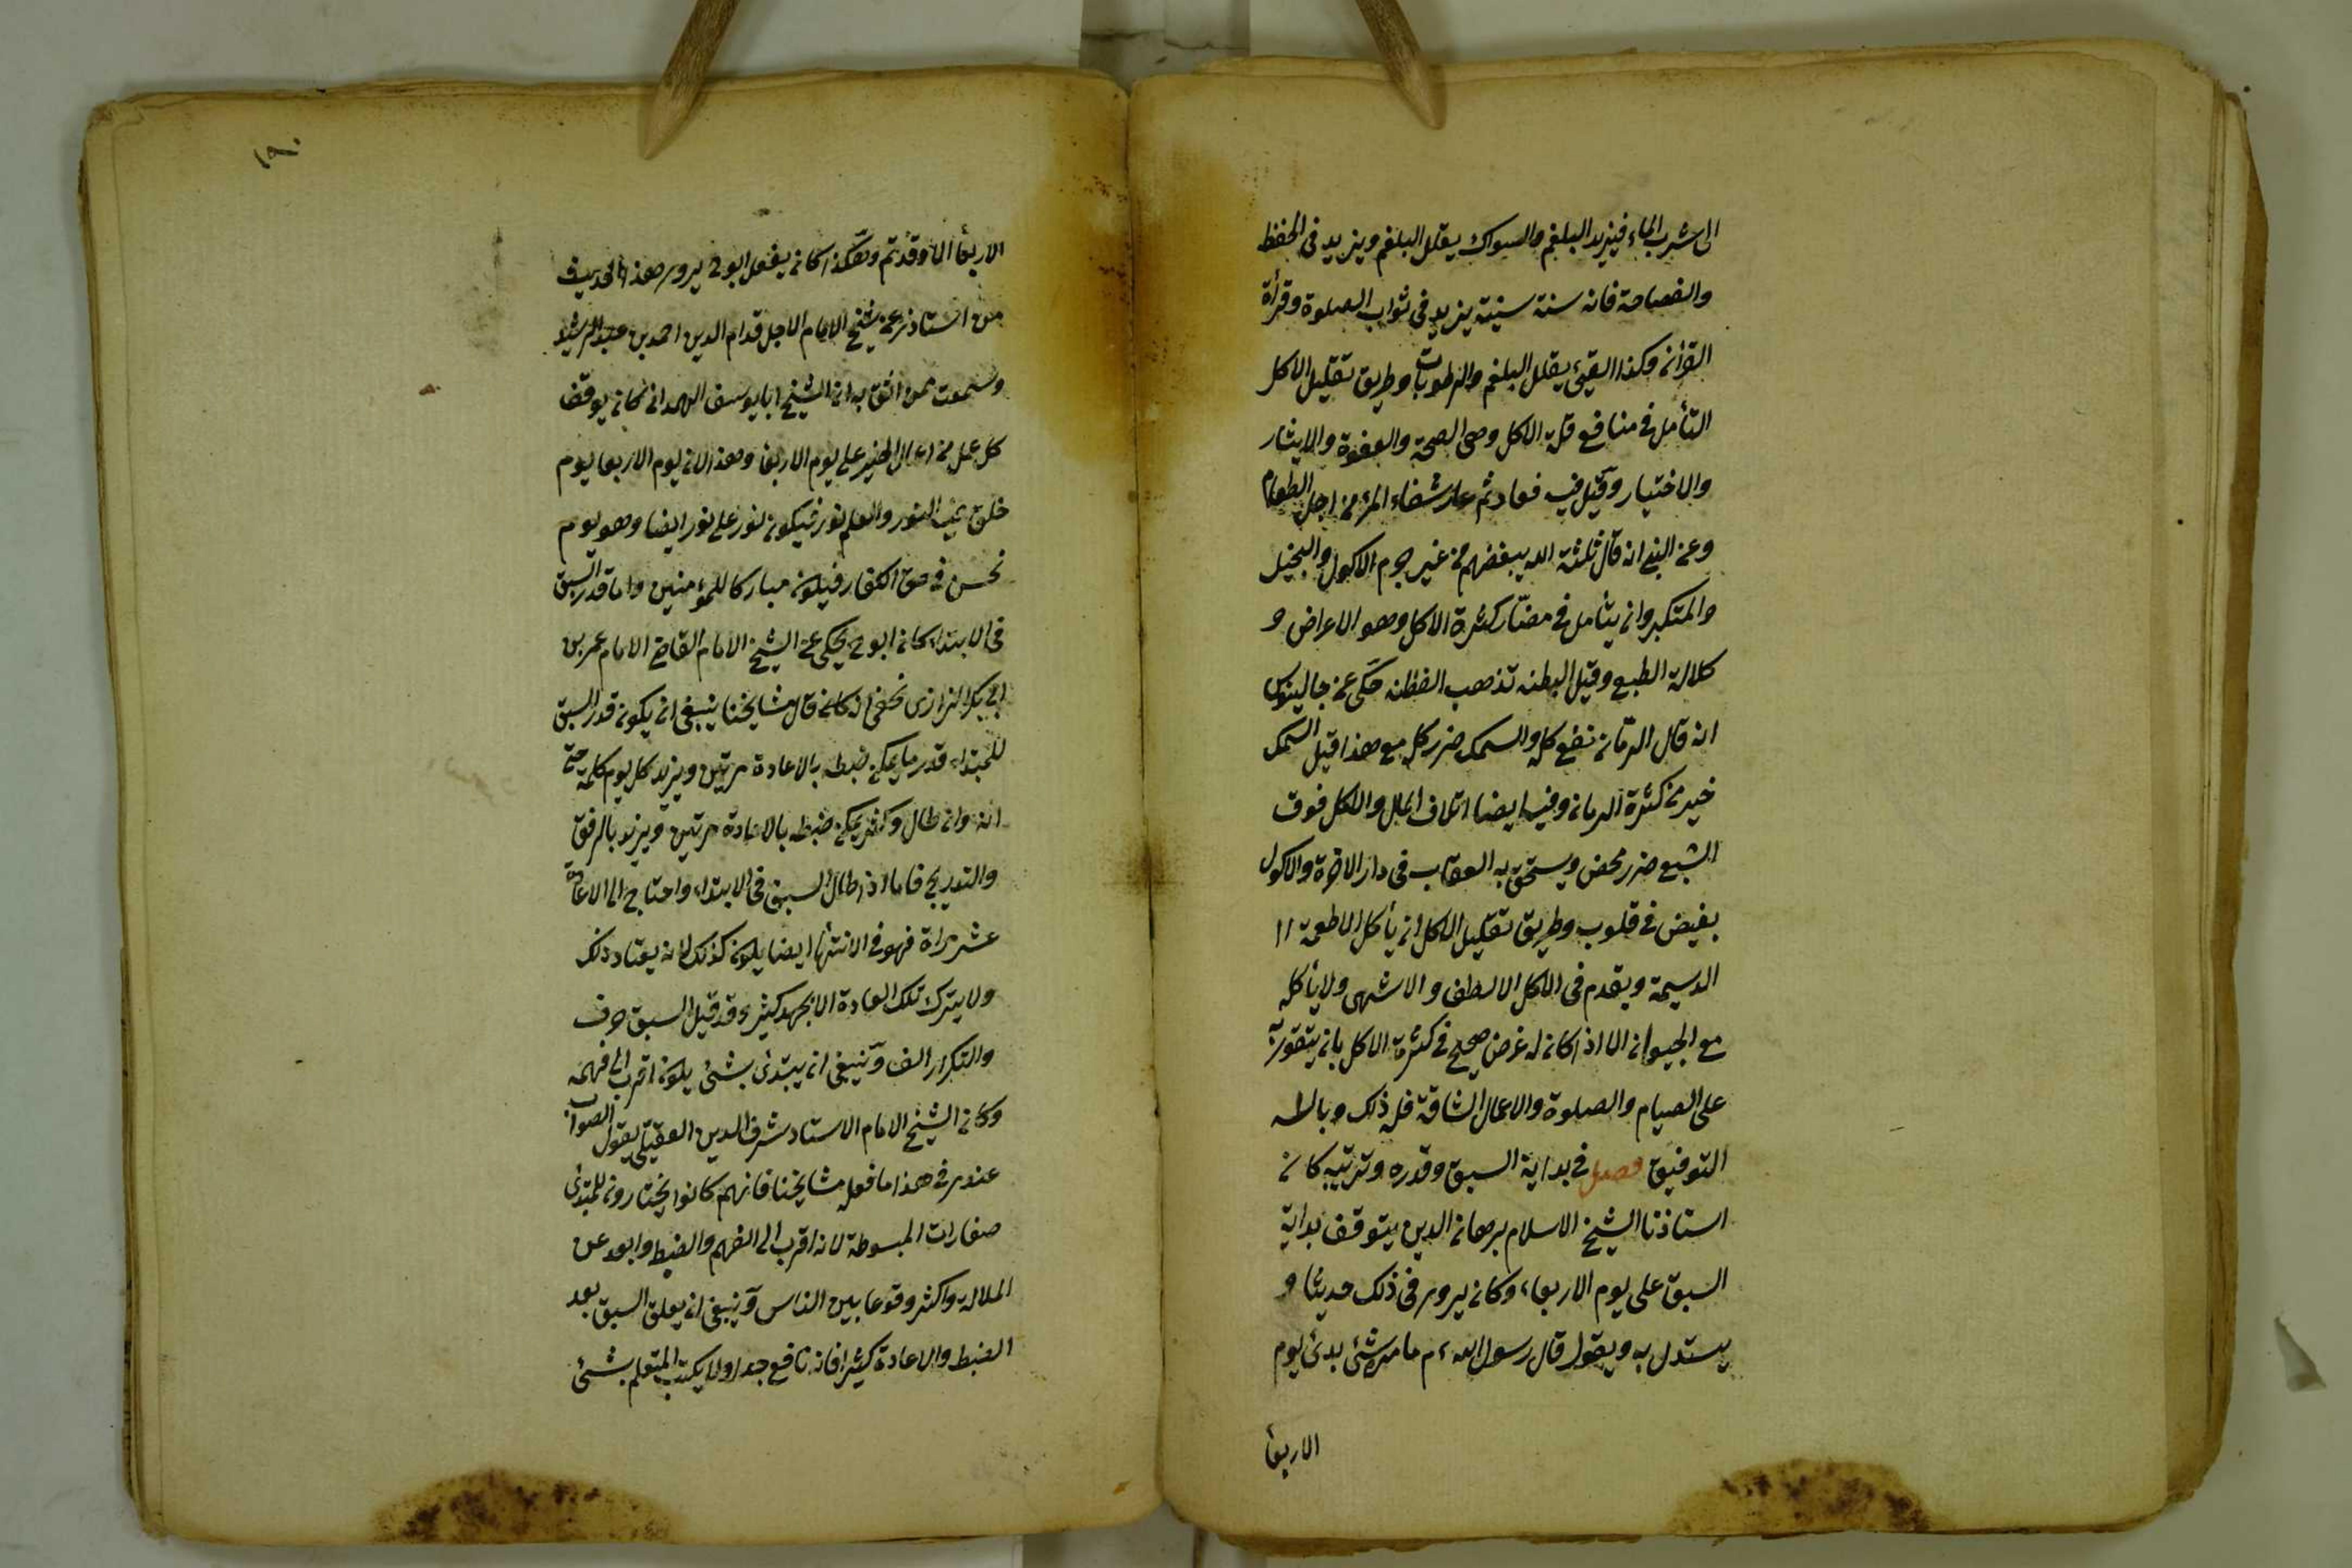 الى شرب الماء فيزيد البلغم والسواك يقلل البلغم ويزيد فى الحفظ
والفصاحة فانه سنة سنية يزيد فى ثواب الصلوة وقرأة
القرأن وكذا القيئ يقلل البلغم والرطوبات وطريق تقليل الاكل
التأمل فى منافع قلة الاكل وهى الصحة والعفوة والايثار
والاختيار وقيل فيه فعار ثم عار شقاء المرء من اجل الطعام
وعن النبى انه قال ثلثة الله يبغضهم من غير جرم الاكول والبخيل
والمتكبر وان يتأمل فى مضار كثرة الاكل وهو الاعراض و
كلالة الطبع وقيل البطنه تذهب الفطنه حكى عن جالينوس
انه قال الرمان نفع كله والسمك ضرر كله مع هذا قيل السمك
خير من كثرة الرمان وفيه ايضا اتلاف المال والاكل فوق
الشبع ضرر محض ويستحق به العقاب فى دار الاخرة والاكول
بغيض فى قلوب وطريق تقليل الاكل ان يأكل الاطعمة اا
الدسيمة ويقدم فى الاكل الالطف والاشهى ولا يأكله
مع الجيوان الا اذا كان له غرض صحيح فى كثرة الاكل بان يتقوى به
على الصيام والصلوة والاعمال الشاقة فله ذلك وبالله
التوفيق فصل فى بداية السبق وقدره وترتيبه كان
استاذنا الشيخ الاسلام برهان الدين يتوقف بداية
السبق على يوم الاربعاء وكان يروى فى ذلك حديثا و
يستدل به ويقول قال رسول الله م ما من شئ بدئ يوم
الاربعأ
١٩٠
الاربعأ الا وقد تم وهكذا كان يفعل ابو ح يروى هذا الحديث
من استاذى عن شيخ الامام الاجل قدام الدين احمد بن عبد الرشيد
وسمعت ممن اثق به ان الشيخ ابا يوسف الهمدانى كان يوقف
كل عمل من اعمال الخير على يوم الاربعأ وهذا لان يوم الاربعا يوم
خلق فيه النور والعلم نور فيكون نور على نور ايضا وهو يوم
نحس فى حق الكفار فيكون مباركا للمؤمنين واما قدر السبق
فى الابتداء كان ابو ح يحكى عن الشيخ الامام القاضى الامام عمر بن
ابى بكر الزارى نخفى انه كان قال مشايخنا ينبغى ان يكون قدر السبق
للمبتداء قدر ما يمكن ضبطه بالاعادة مرتين ويزيد كل يوم كلمة حتى
انه وان طال وكثر يمكن ضبطه بالاعادة مرتين ويزيد بالرفق
والتدريج فاما اذا طال السبق فى الابتداء واحتاج الى الاعادة
عشر مراة فهو فى الانتهأ ايضا يكون كذلك لانه يعتاد ذلك
ولا يترك تلك العادة الا بجهد كثير وقد قيل السبق حرف
والتكرار الف وينبغى ان يبتدئ بشئ يكون اقرب الى فهمه
وكان الشيخ الامام الاستاد شرف الدين العقيلى يقول الصواب
عندى فى هذا ما فعله مشايخنا فانهم كانوا يختارون للمبتدى
صغارات المبسوطة لانه اقرب الى الفهم والضبط وابعد عن
الملالة واكثر وقوعا بين الناس وينبغى ان يعلق السبق بعد
الضبط والاعادة كثيرا فانه نافع جدا ولا يكتب المتعلم بشئ